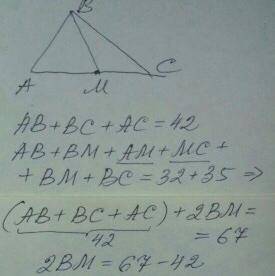 B
A M C
AB+BC+AC=42
AB+BM+AM+MC+
+BM+BC=32+35 =>
(AB+BC+AC)+2BM=
42 =67
2BM=67-42